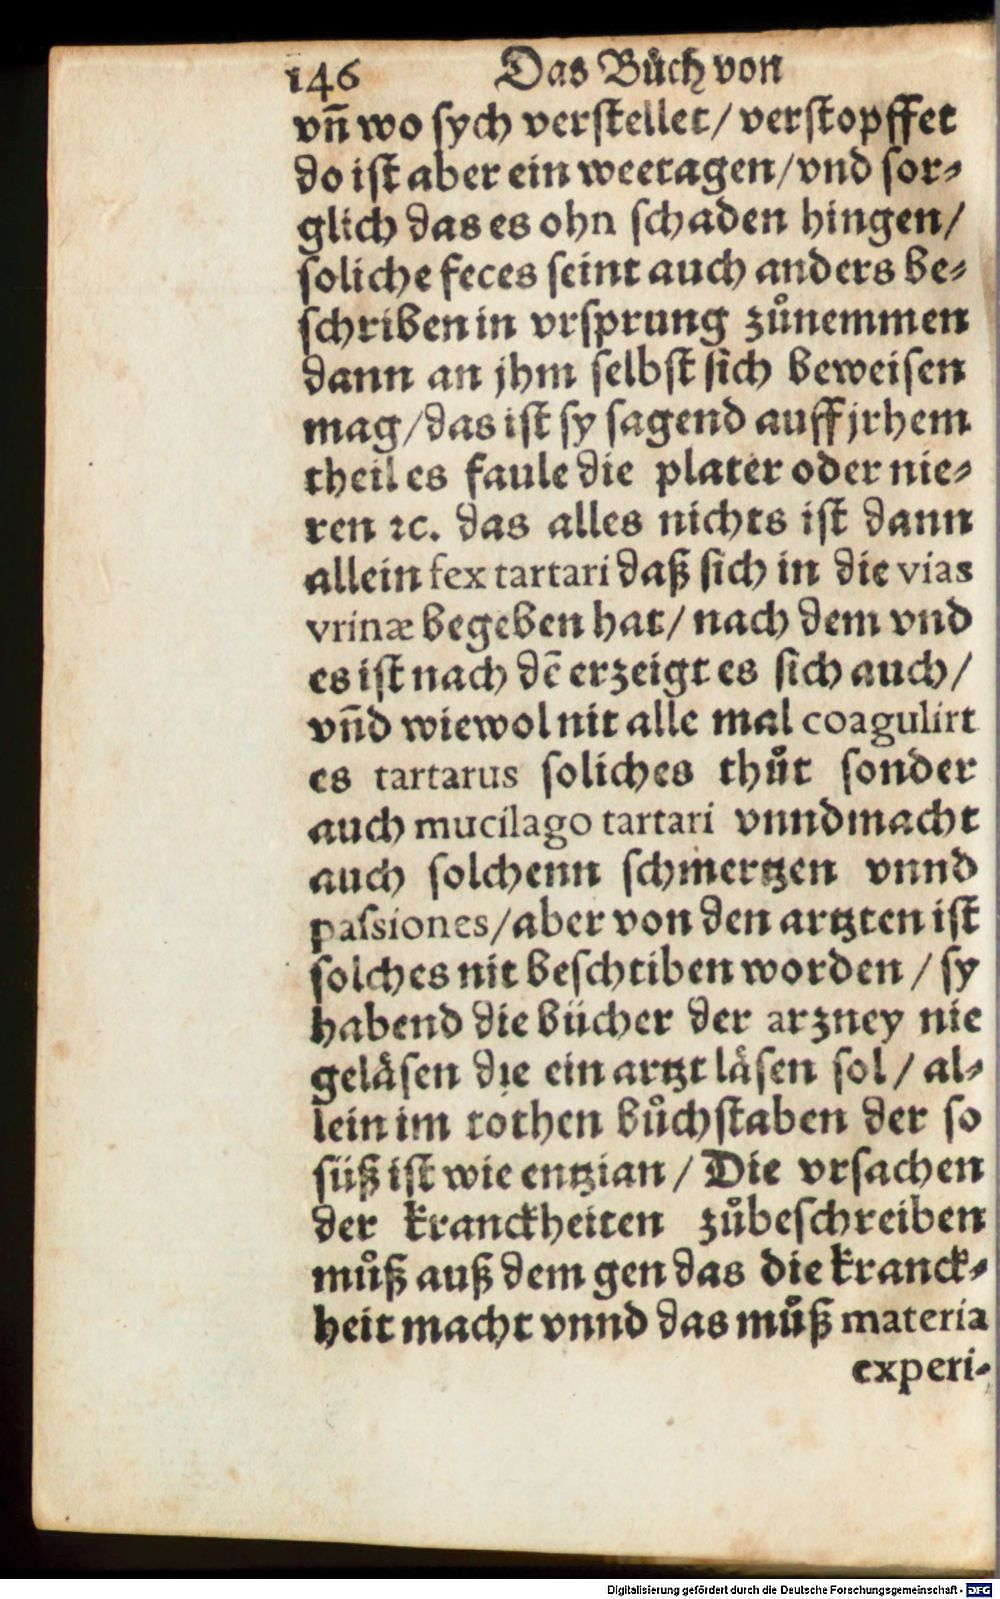 146 Das Bůch von
vñ wo sych verstellet/ verstopffet
do ist aber ein weetagen/vnd sor⸗
glich das es ohn schaden hingen/
soliche feces seint auch anders be⸗
schriben in vrsprung zůnemmen
dann an jhm selbst sich beweisen
mag/das ist sy sagend auff jrhem
theil es faule die plater oder nie⸗
ren ꝛc. das alles nichts ist dann
allein fex tartari daß sich in die vias
vrinæ begeben hat/ nach dem vnd
es ist nach dē erzeigt es sich auch/
vñd wiewol nit alle mal coagulirt
es tartarus soliches thůt sonder
auch mucilago tartari vnnd macht
auch solchenn schmertzen vnnd
passiones/aber von den artzten ist
solches nit beschriben worden / sy
habend die bücher der arzney nie
geläsen die ein artzt läsen sol/ al⸗
lein im rothen bůchstaben der so
süß ist wie entzian / Die vrsachen
der kranckheiten zůbeschreiben
můß auß dem gen das die kranck⸗
heit macht vnnd das můß materia
experi⸗
Digitalisierung gefördert durch die Deutsche Forschungsgemeinschaft - DFG